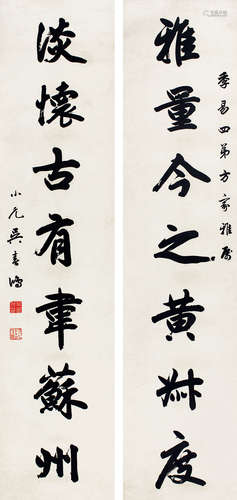 季易四弟方家雅属
雅量今之黄叔度
淡懷古有韋蘇州
小亢吴春鴻